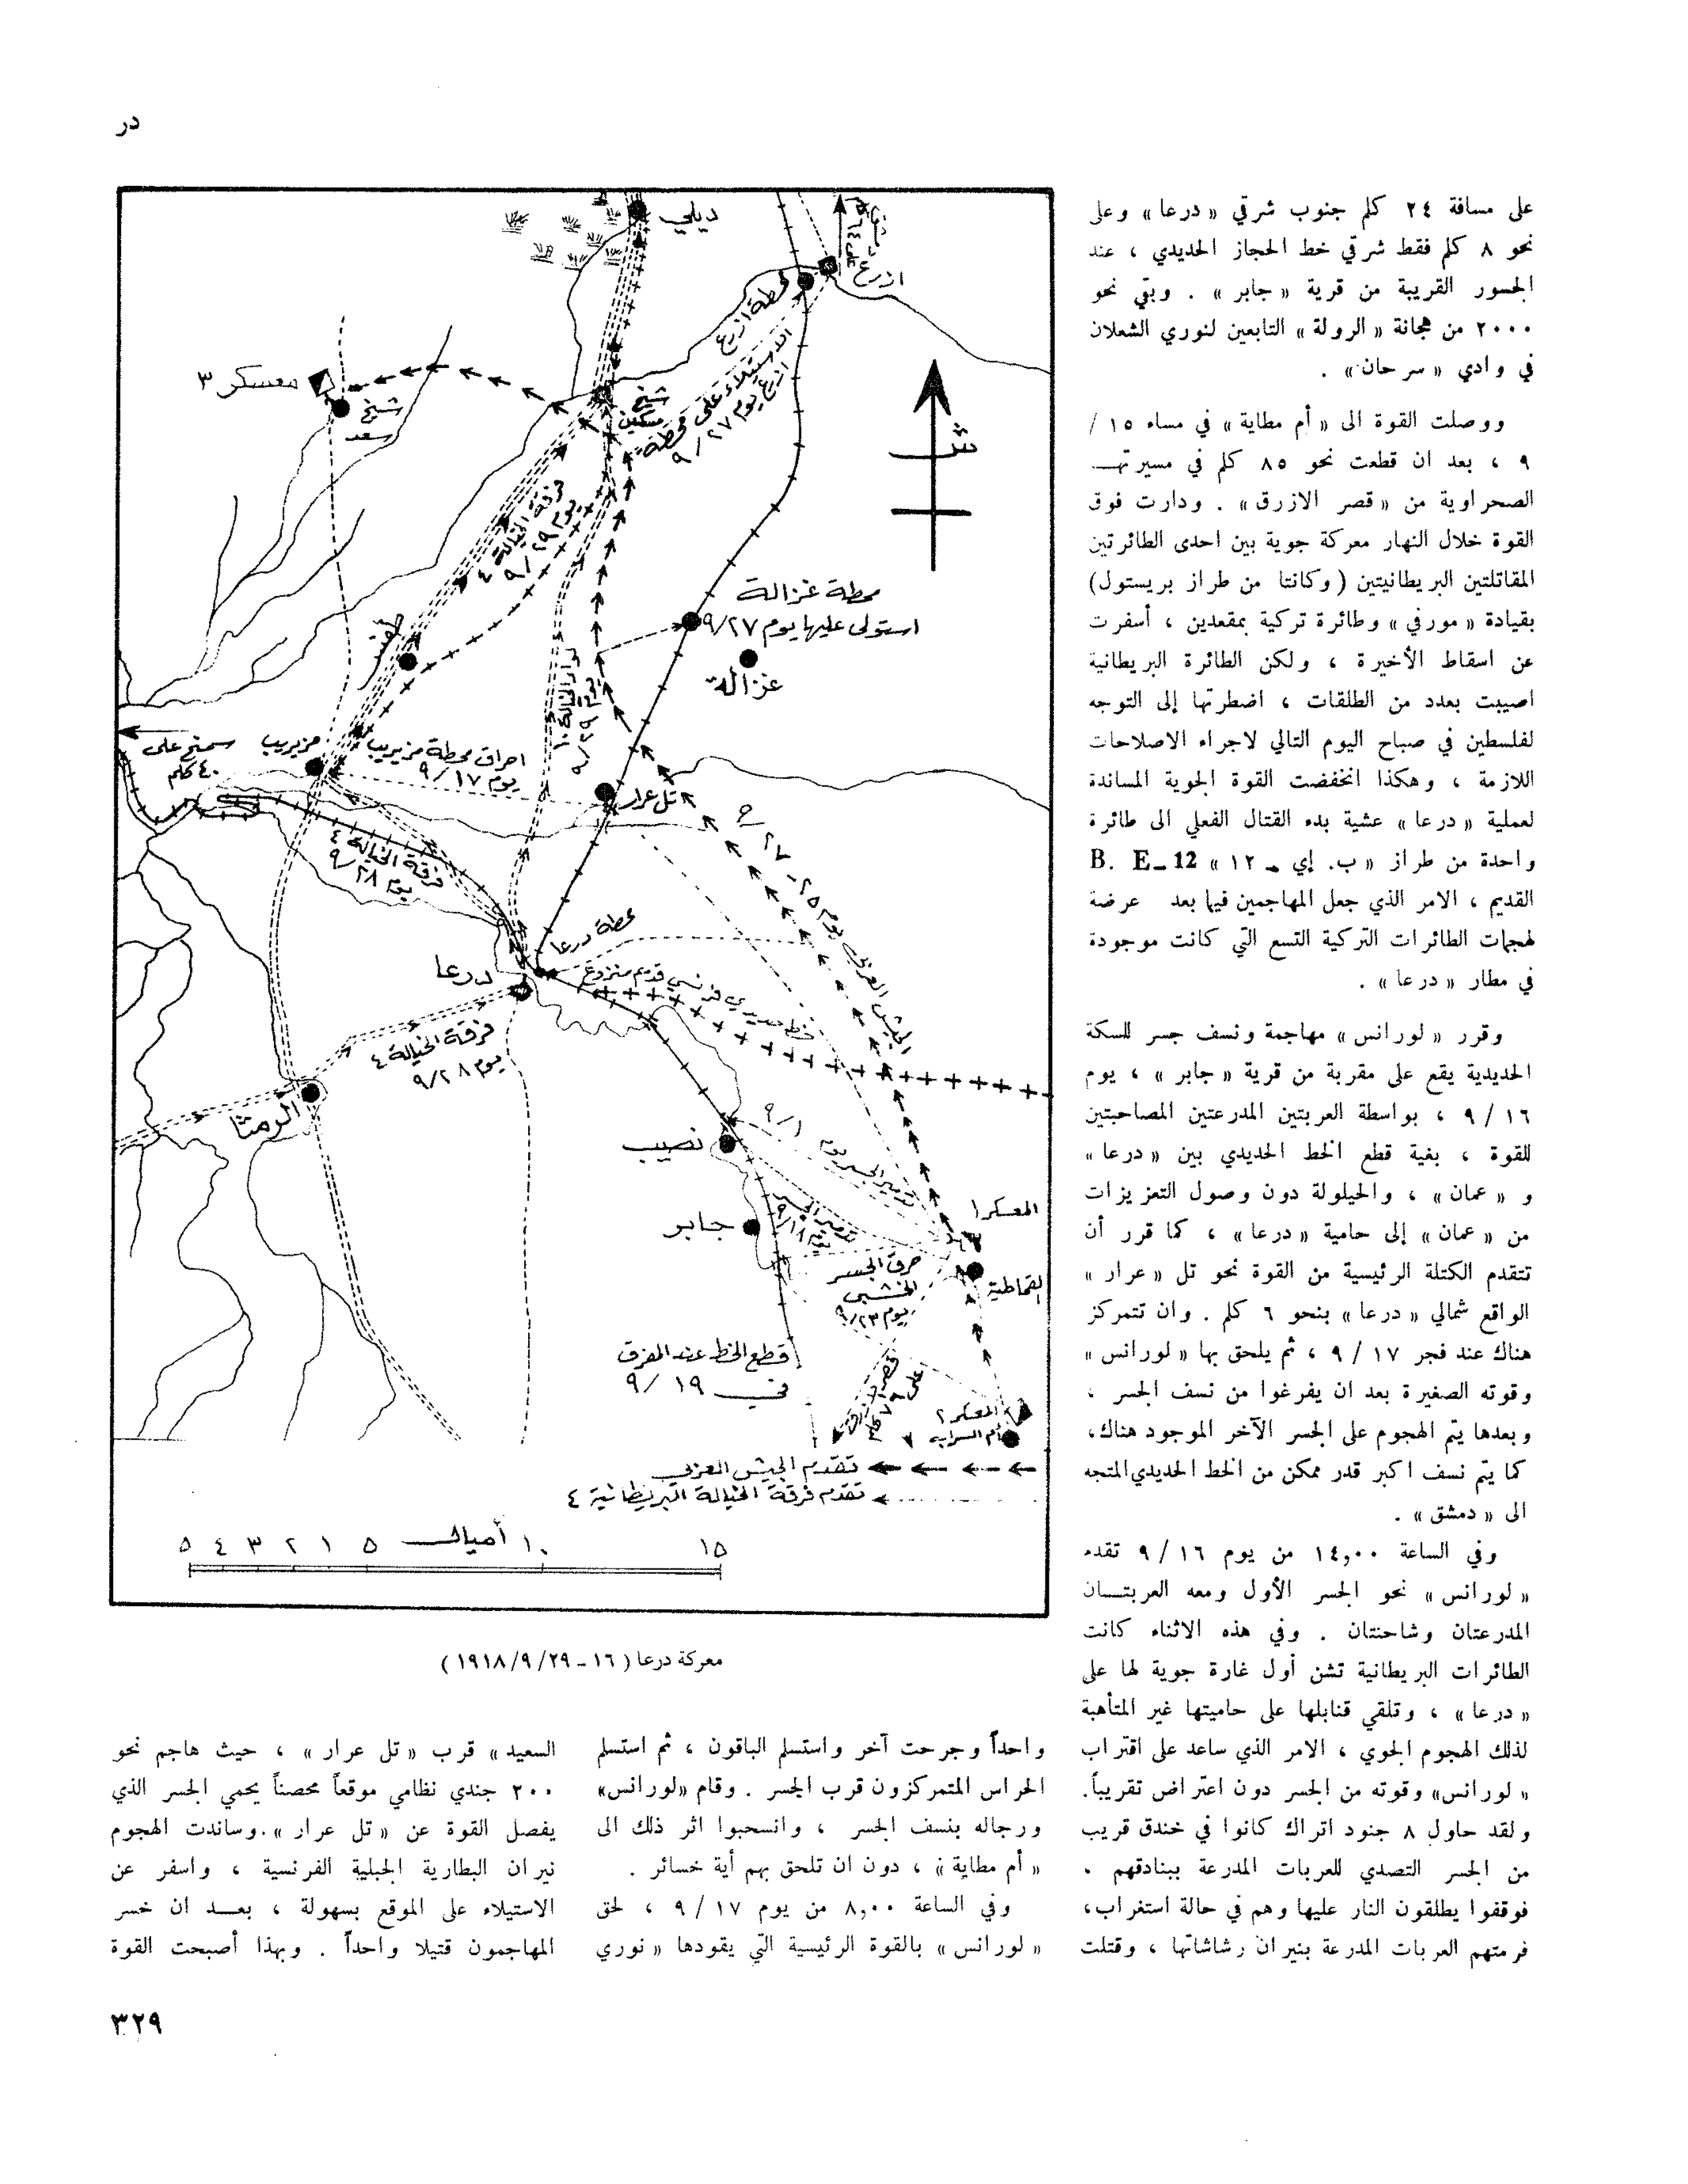 در
على مسافة ٢٤ كلم جنوب شرقي « درعا » وعلى
نحو ٨ كلم فقط شرقي خط الحجاز الحديدي ، عند
الجسور القريبة من قرية « جابر » . وبقي نحو
٢٠٠٠ من هجانة « الرولة » التابعين لنوري الشعلان
في وادي « سرحان » .
ووصلت القوة الى « أم مطاية » في مساء ١٥ /
٩ ، بعد ان قطعت نحو ٨٥ كلم في مسيرتهـــا
الصحراوية من « قصر الازرق » . ودارت فوق
القوة خلال النهار معركة جوية بين احدى الطائرتين
المقاتلتين البريطانيتين ( وكانتا من طراز بريستول )
بقيادة « مورفي » وطائرة تركية بمقعدين ، أسفرت
عن اسقاط الأخيرة ، ولكن الطائرة البريطانية
اصيبت بعدد من الطلقات ، اضطرتها إلى التوجه
لفلسطين في صباح اليوم التالي لاجراء الاصلاحات
اللازمة ، وهكذا انخفضت القوة الجوية المساندة
لعملية « درعا » عشية بدء القتال الفعلي الى طائرة
واحدة من طراز « ب. إي ـ ١٢ » B. E_12
القديم ، الامر الذي جعل المهاجمين فيما بعد عرضة
لهجمات الطائرات التركية التسع التي كانت موجودة
في مطار « درعا » .
وقرر « لورانس » مهاجمة ونسف جسر للسكة
الحديدية يقع على مقربة من قرية « جابر » ، يوم
١٦ / ٩ ، بواسطة العربتين المدرعتين المصاحبتين
للقوة ، بغية قطع الخط الحديدي بين « درعا »
و « عمان » ، والحيلولة دون وصول التعزيزات
من « عمان » إلى حامية « درعا » ، كما قرر أن
تتقدم الكتلة الرئيسية من القوة نحو تل « عرار »
الواقع شمالي « درعا » بنحو ٦ كلم . وان تتمركز
هناك عند فجر ١٧ / ٩ ، ثم يلحق بها « لورانس »
وقوته الصغيرة بعد ان يفرغوا من نسف الجسر ،
وبعدها يتم الهجوم على الجسر الآخر الموجود هناك،
كما يتم نسف اكبر قدر ممكن من الخط الحديدي المتجه
الى « دمشق » .
وفي الساعة ١٤,٠٠ من يوم ١٦ / ٩ تقدم
« لورانس » نحو الجسر الأول ومعه العربتـــان
المدرعتان وشاحنتان . وفي هذه الاثناء كانت
الطائرات البريطانية تشن أول غارة جوية لها على
« درعا » ، وتلقي قنابلها على حاميتها غير المتأهبة
لذلك الهجوم الجوي ، الامر الذي ساعد على اقتراب
« لورانس » وقوته من الجسر دون اعتراض تقريباً.
ولقد حاول ٨ جنود اتراك كانوا في خندق قريب
من الجسر التصدي للعربات المدرعة ببنادقهم ،
فوقفوا يطلقون النار عليها وهم في حالة استغراب،
فرمتهم العربات المدرعة بنيران رشاشاتها ، وقتلت
ديلي
ازرع
محطة ازرع
الاستيلاء على محطة
ازرع يوم ٩/٢٧
ش
معسكر ٣
شيخ
سعد
شيخ
مسكين
فرقة الخيالة ٤
يوم ٩/٢٩
محطة غزالة
استولى عليها يوم ٩/٢٧
غزالة
طفس
سمخ على
٤٠ كلم
مزيريب
احراق محطة مزيريب
يوم ٩/١٧
تل عرار
فرقة الخيالة ٤
يوم ٩/٢٨
محطة درعا
درعا
خط حديدي فرنسي قديم منزوع
فرقة الخيالة ٤
يوم ٩/٢٨
الرمثا
نصيب
جابر
المعسكر ١
حرق الجسر
الخشبي
يوم ٩/٢٣
قطع الخط عند المفرق
في ٩/١٩
المعسكر ٢
أم السراب
تقدم الجيش العربي
تقدم فرقة الخيالة البريطانية ٤
٥ ٤ ٣ ٢ ١ ٥ أميال ١٠ ١٥
معركة درعا ( ١٦ - ١٩١٨/٩/٢٩ )
واحداً وجرحت آخر واستسلم الباقون ، ثم استسلم
الحراس المتمركزون قرب الجسر . وقام «لورانس»
ورجاله بنسف الجسر ، وانسحبوا اثر ذلك الى
« أم مطاية » ، دون ان تلحق بهم أية خسائر .
وفي الساعة ٨,٠٠ من يوم ١٧ / ٩ ، لحق
« لورانس » بالقوة الرئيسية التي يقودها « نوري
السعيد » قرب « تل عرار » ، حيث هاجم نحو
٢٠٠ جندي نظامي موقعاً محصناً يحمي الجسر الذي
يفصل القوة عن « تل عرار ».وساندت الهجوم
نيران البطارية الجبلية الفرنسية ، واسفر عن
الاستيلاء على الموقع بسهولة ، بعـــد ان خسر
المهاجمون قتيلا واحداً . وبهذا أصبحت القوة
٣٢٩